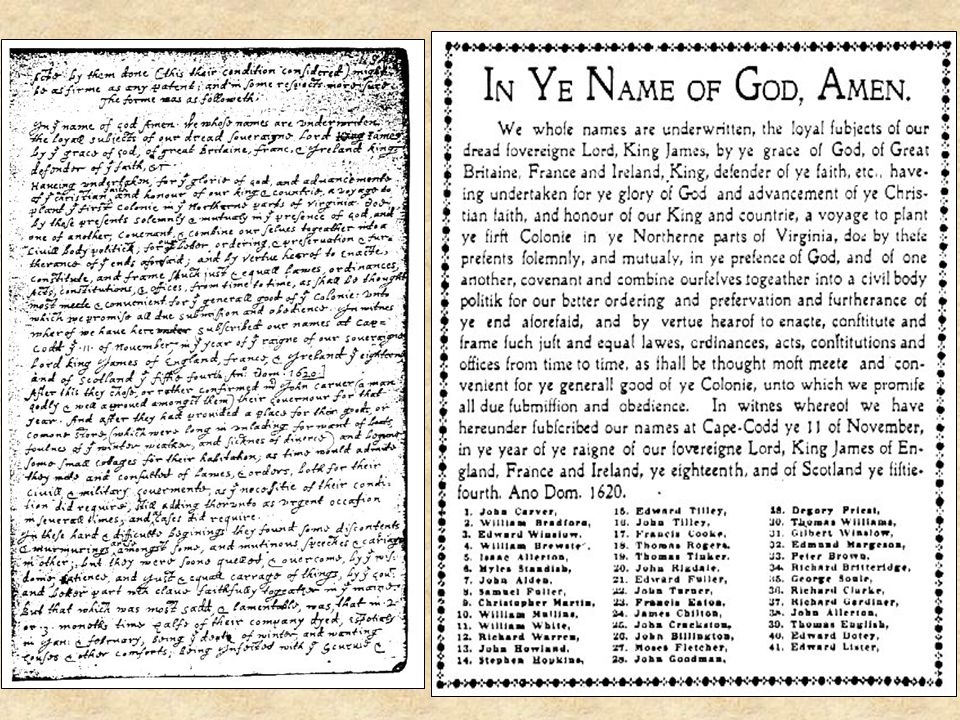 1e by them done (this their condition considered) might
be as firme as any patent; and in some respects more sure.
The forme was as followeth.
In yͤ name of god Amen. We whose names are underwriten,
the loyall subjects of our dread soveraigne Lord King James
by yͤ grace of god, of great Britaine, franc, & Ireland king,
defender of yͤ faith, &c
Haveing undertaken, for yͤ glorie of god, and advancemente
of yͤ christian faith and honour of our king & countrie, a voyage to
plant yͤ first colonie in yͤ Northerne parts of Virginia. Doe
by these presents solemnly & mutualy in yͤ presence of god, and
one of another, covenant, & combine our selves togeather into a
Civill body politick; for our better ordering, & preservation & fur=
therance of yͤ ends aforesaid; and by vertue hearof to enacte,
constitute, and frame such just & equall lawes, ordinances,
Acts, constitutions, & offices, from time to time, as shall be thought
most meete & convenient for yͤ generall good of yͤ Colonie: unto
which we promise all due submission and obedience. In witnes
wherof we have hereunder subscribed our names at Cap=
Codd yͤ ·11· of November, in yͤ year of yͤ raigne of our soveraigne
Lord king James of England, france, & Ireland yͤ eighteenth
and of Scotland yͤ fiftie fourth. Anᵒ: Dom. 1620.
After this they chose, or rather confirmed mʳ John carver (a man
godly & well approved amongst them) their Governour for that
year. And after they had provided a place for their goods, or
comone store, (which were long in unlading for want of boats,
foulnes of yͤ winter weather, and sicknes of diverce) and begune
some small cottages for their habitation; as time would admitte
they mette and consulted of lawes, & orders, both for their
civill & military Govermente, as yͤ necessitie of their condi=
tion did require, still adding therunto as urgent occasion
in severall times, and as cases did require.
In these hard & difficulte beginings they found some discontents
& murmurings amongst some, and mutinous speeches & cariags
in other; but they were soone quelled, & overcome, by yͤ wis=
dome, patience, and just & equall carrage of things, by yͤ Govʳ
and better part wᶜʰ clave faithfully togeather in yͤ maine.
But that which was most sadd, & lamentable, was, that in ·2·
or ·3· moneths time halfe of their company dyed, espetialy
in Jan: & february, being yͤ depth of winter, and wanting
houses & other comforts; being Infected with yͤ Scurvie &
IN YE NAME OF GOD, AMEN.
We whoſe names are underwritten, the loyal ſubjects of our
dread ſovereigne Lord, King James, by ye grace of God, of Great
Britaine, France and Ireland, King, defender of ye faith, etc., have-
ing undertaken for ye glory of God and advancement of ye Chris-
tian faith, and honour of our King and countrie, a voyage to plant
ye firſt Colonie in ye Northerne parts of Virginia, doe by theſe
preſents ſolemnly, and mutualy, in ye preſence of God, and of one
another, covenant and combine ourſelves togeather into a civil body
politik for our better ordering and preſervation and furtherance of
ye end aforeſaid, and by vertue hearof to enacte, conſtitute and
frame ſuch juſt and equal lawes, ordinances, acts, conſtitutions and
offices from time to time, as ſhall be thought moſt meete and con-
venient for ye generall good of ye Colonie, unto which we promiſe
all due ſubmiſſion and obedience. In witnes whereof we have
hereunder ſubſcribed our names at Cape-Codd ye 11 of November,
in ye year of ye raigne of our ſovereigne Lord, King James of En-
gland, France and Ireland, ye eighteenth, and of Scotland ye fiftie-
fourth. Ano Dom. 1620.
1. John Carver,
2. William Bradford,
3. Edward Winslow,
4. William Brewster,
5. Isaac Allerton,
6. Myles Standish,
7. John Alden,
8. Samuel Fuller,
9. Christopher Martin,
10. William Mullins,
11. William White,
12. Richard Warren,
13. John Howland,
14. Stephen Hopkins,
15. Edward Tilley,
16. John Tilley,
17. Francis Cooke,
18. Thomas Rogers,
19. Thomas Tinker,
20. John Rigdale,
21. Edward Fuller,
22. John Turner,
23. Francis Eaton,
24. James Chilton,
25. John Crackston,
26. John Billington,
27. Moses Fletcher,
28. John Goodman,
29. Degory Priest,
30. Thomas Williams,
31. Gilbert Winslow,
32. Edmund Margeson,
33. Peter Brown,
34. Richard Britteridge,
35. George Soule,
36. Richard Clarke,
37. Richard Gardiner,
38. John Allerton,
39. Thomas English,
40. Edward Doten,
41. Edward Lister,